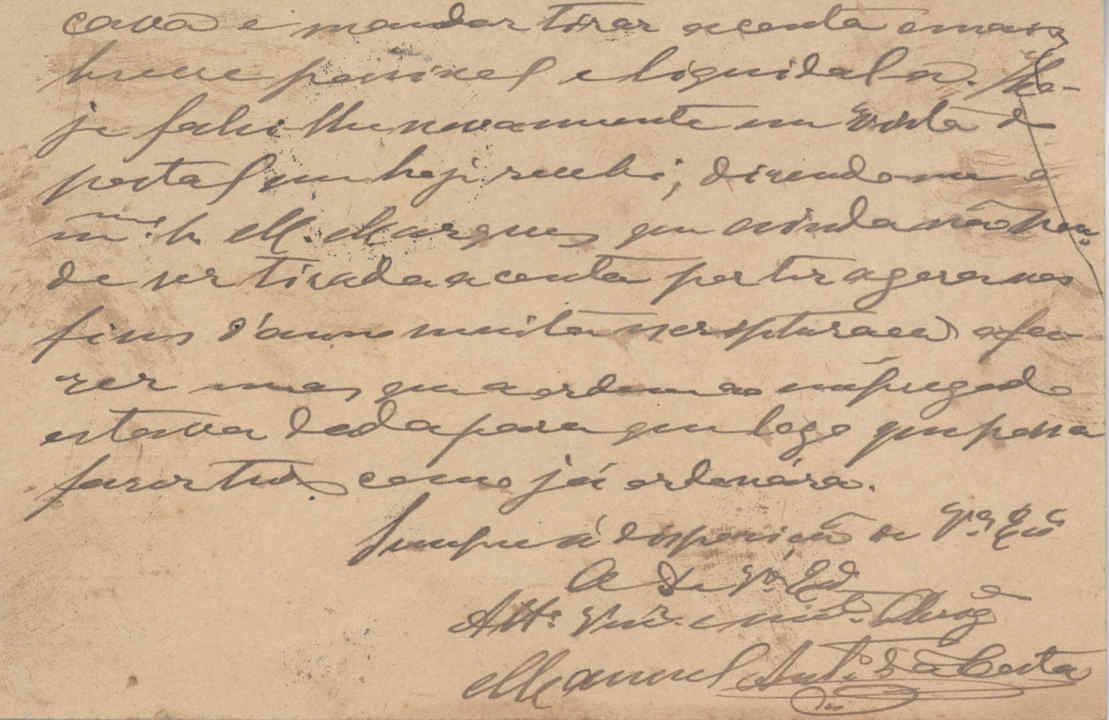 cava é mandar tirar a conta o mais
breve possivel e liquidal-a. Ho-
je falei-lhe novamente em vista do
postal que hoje recebi; disendo-me o
m.mo Sr. M. Marques que ainda não pou-
de ser tirada a conta por ter agora nos
fins d'anno muita escripturação a fa-
zer mas que a ordem ao empregado
estava dada para que logo que possa
faser tudo como já ordenára.
Sempre á disposição de V.as Ex.cias
De V.as Ex.as
Att.o Ven.or e mt.o Obrig.do
Manuel Ant.o da Costa